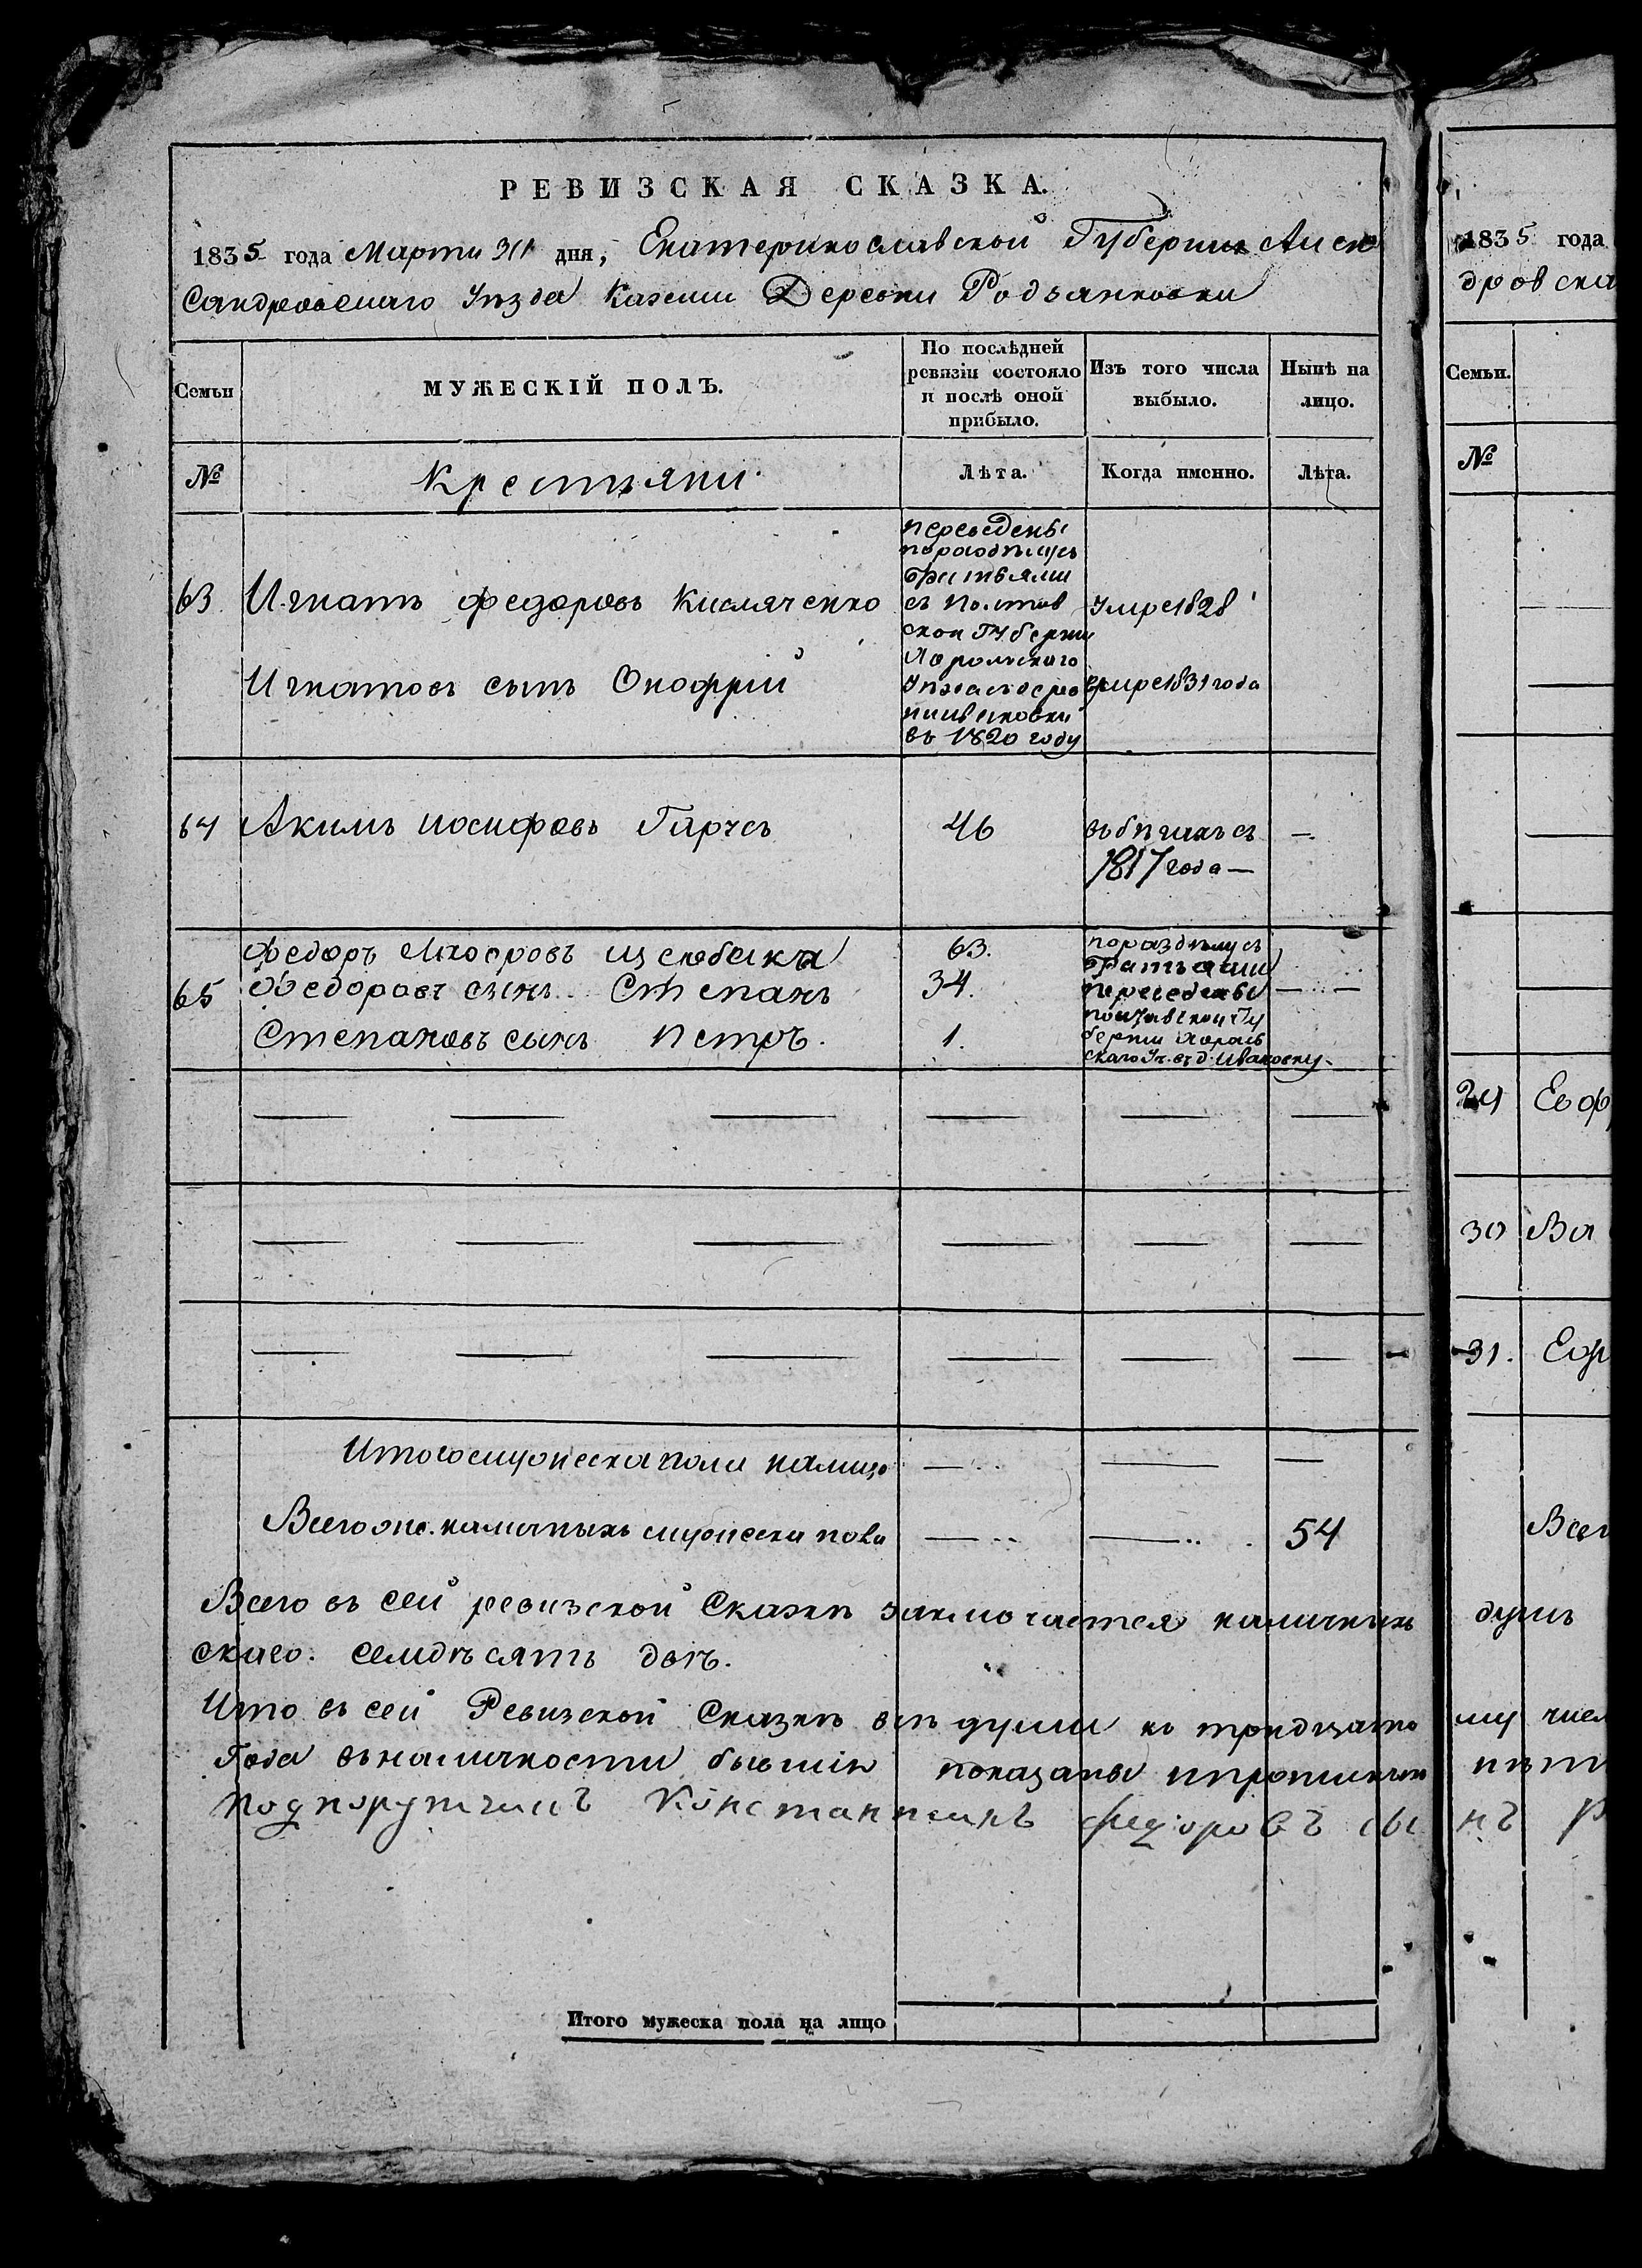 РЕВИЗСКАЯ СКАЗКА.
1835 года Марта 31 дня, Екатеринославской Губернии Алек
сандровскаго Уѣзда Деревни Родзянковки
Семьи
МУЖЕСКІЙ ПОЛЪ.
По послѣдней ревизіи состояло и послѣ оной прибыло.
Изъ того числа выбыло.
Нынѣ на лицо.
№
Крестьяни
Лѣта.
Когда именно.
Лѣта.
63. Игнатъ Федоровъ Кисляченко
Игнатовъ сынъ Онофрій
переведены
поразделусъ
братьями
съ Полтав
ской Губерніи
Хорольскаго
въ 1820 году
Умре 1828
Умре 1831 года
64 Акимъ Иосифовъ Гарчъ 46 въбѣгахъ съ —
1817 года —
Федоръ 63.
65 Федоровъ сынъ Степанъ 34. — —
Степановъ сынъ Петръ. 1.
поразделусъ
братьями
переведены
Полтавской Гу
берніи Хороль
скаго Уѣ. въ д. Ивановку.
Итого мужеска пола налицо
Всего наличныхъ мужеска пола 54
Всего въ сей ревизской Сказкѣ заключается наличныхъ
скаго. семдѣсятъ двѣ.
Что въ сей Ревизской Сказкѣ всѣ души къ тридцато
Года въналичности бывшія показаны ипрописныхъ
подпорутчикъ Константинъ Федоровъ сы
1835 года
дровска
Семьи.
№
29 Евф
30 Ва
31. Ефр
Всег
душъ
му числ
нѣт
нъ Р
Итого мужеска пола на лицо